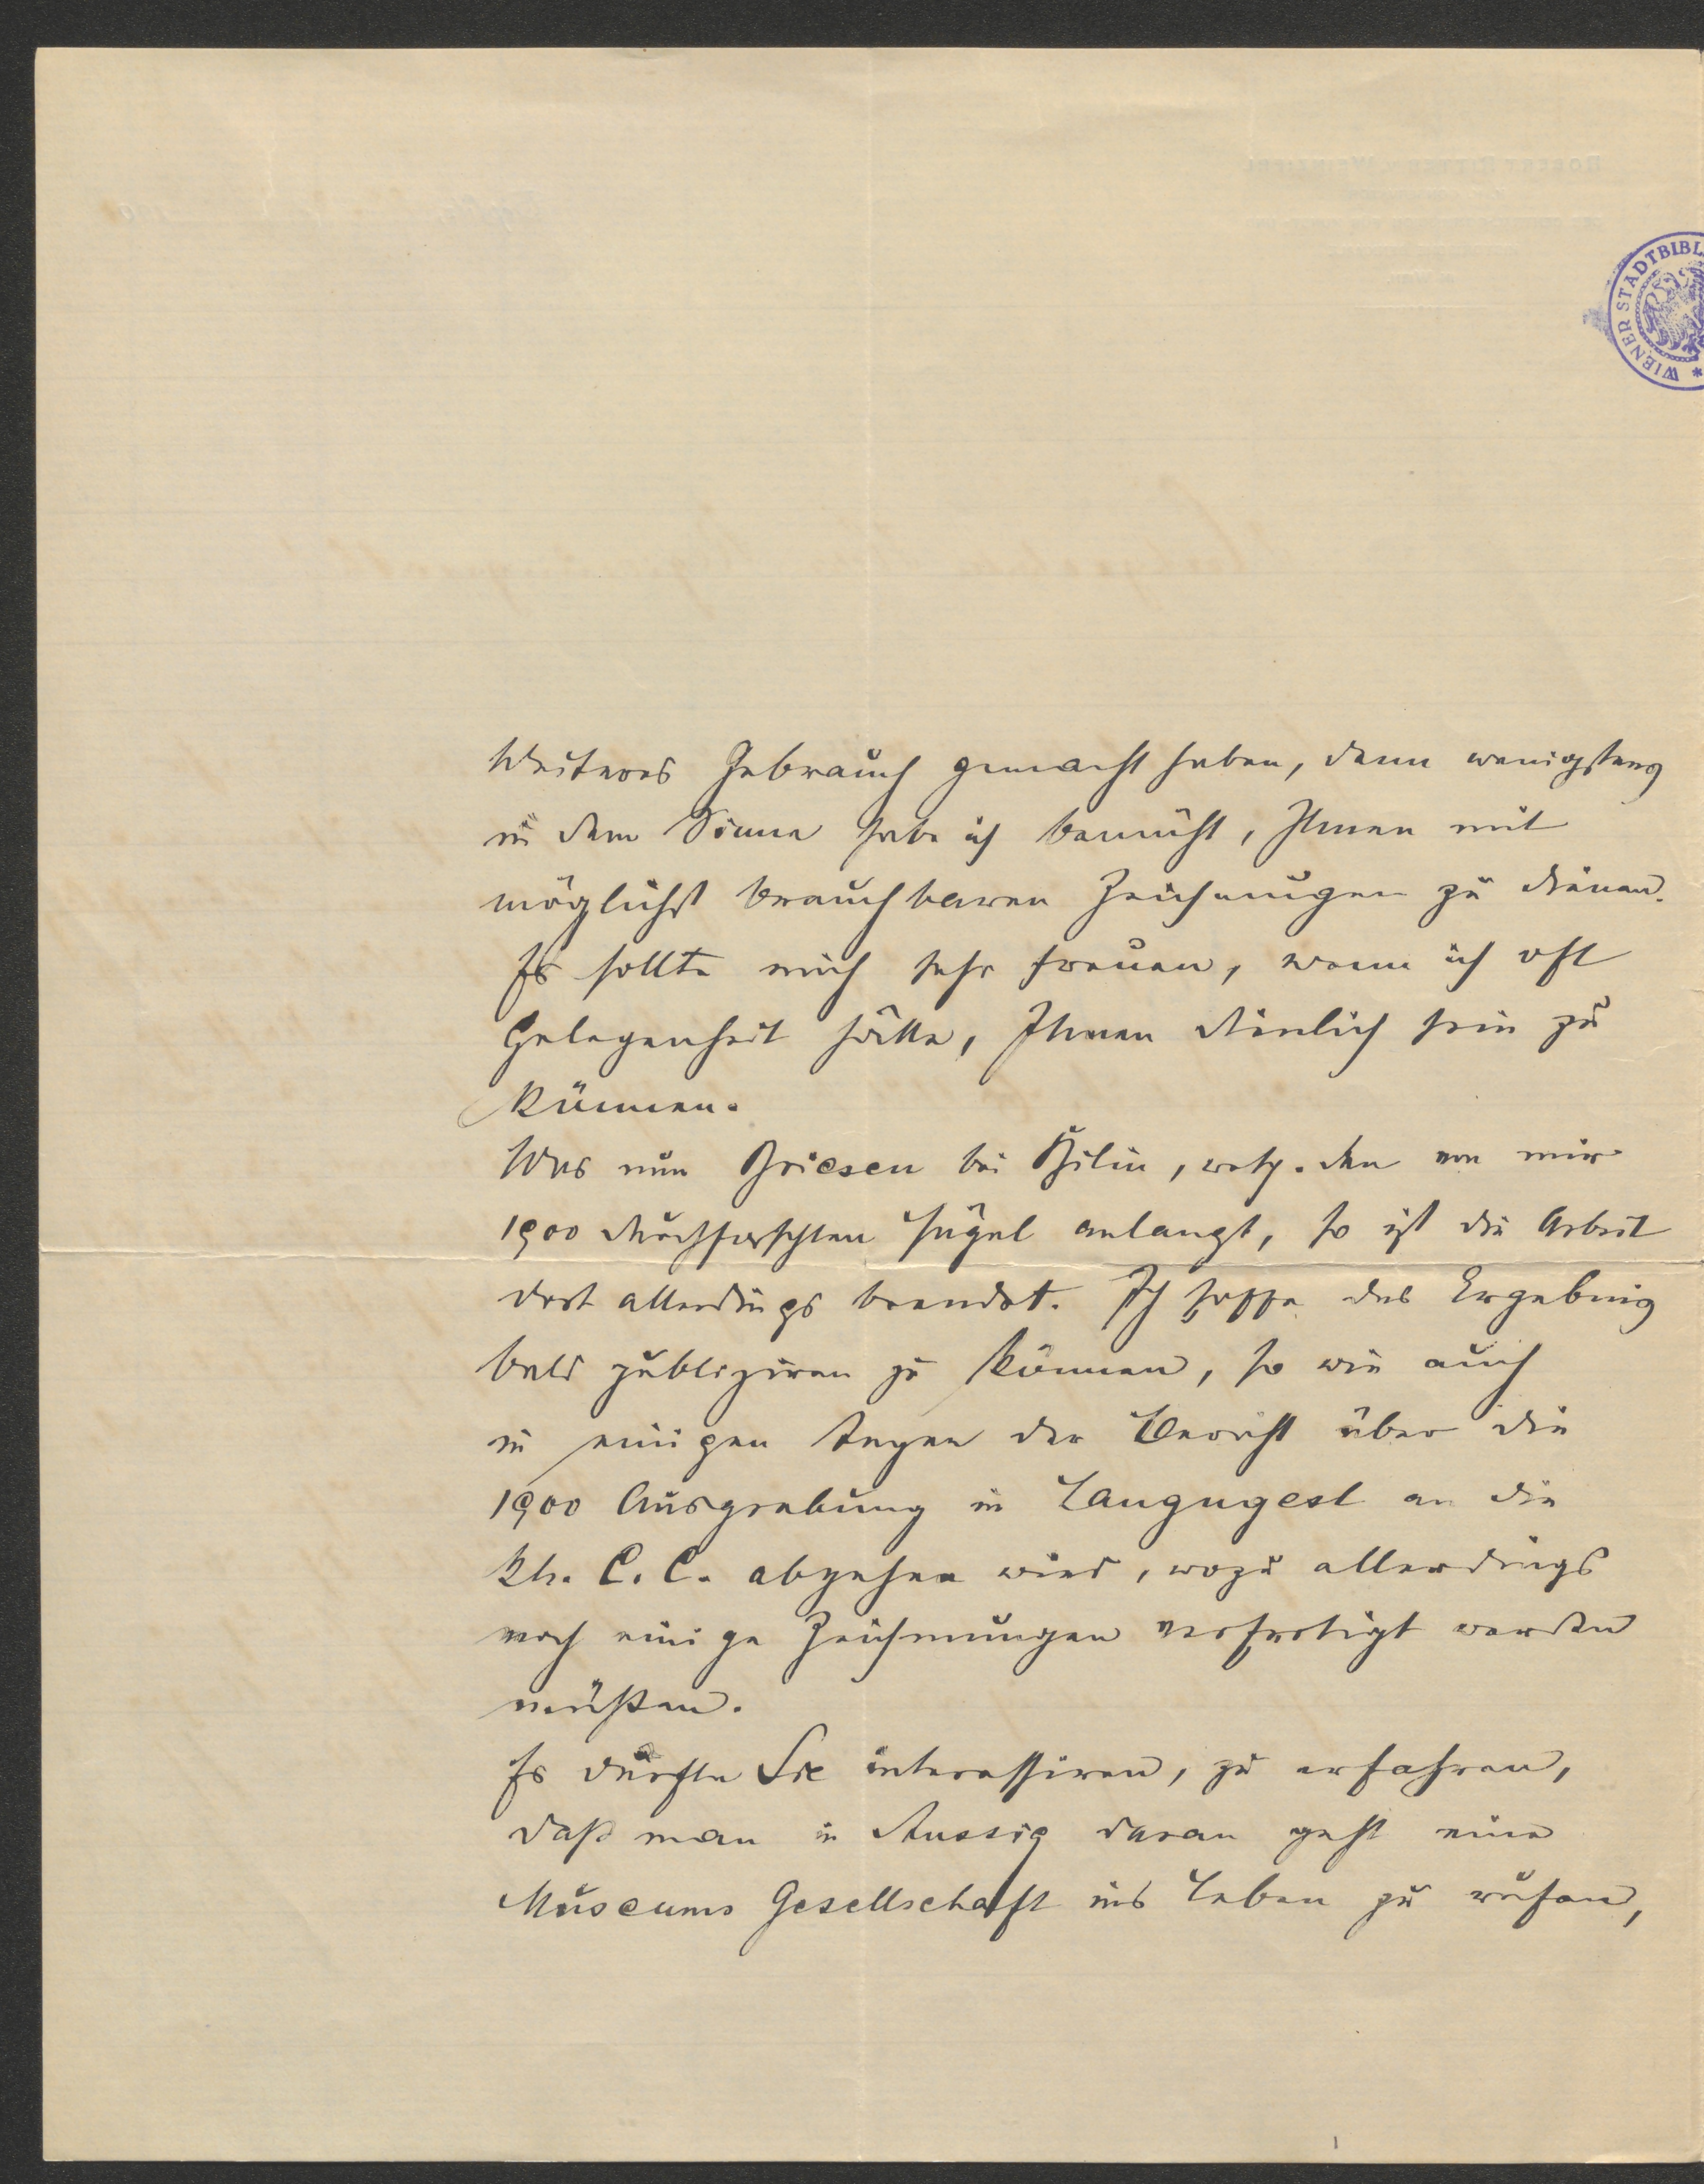 WIENER STADTBIBL
Weiteres Gebrauch gemacht haben, denn wenigstens
in dem Sinne habe ich bemüht, Ihnen mit
möglichst brauchbaren Zeichnungen zu dienen.
Es sollte mich sehr freuen, wenn ich oft
Gelegenheit hätte, Ihnen dienlich sein zu
können.
Was nun Briesen bei Bilin, resp. den von mir
1900 durchforschten Hügel anlangt, so ist die Arbeit
dort allerdings beendet. Ich hoffe das Ergebnis
bald publiziren zu können, so wie auch
in einigen Tagen der Bericht über die
1900 Ausgrabung in Langugest an die
kk. C. C. abgehen wird, wozu allerdings
noch einige Zeichnungen verfertigt werden
müßen.
Es dürfte Sie interessiren, zu erfahren,
daß man in Aussig daran geht eine
Museums Gesellschaft ins Leben zu rufen,